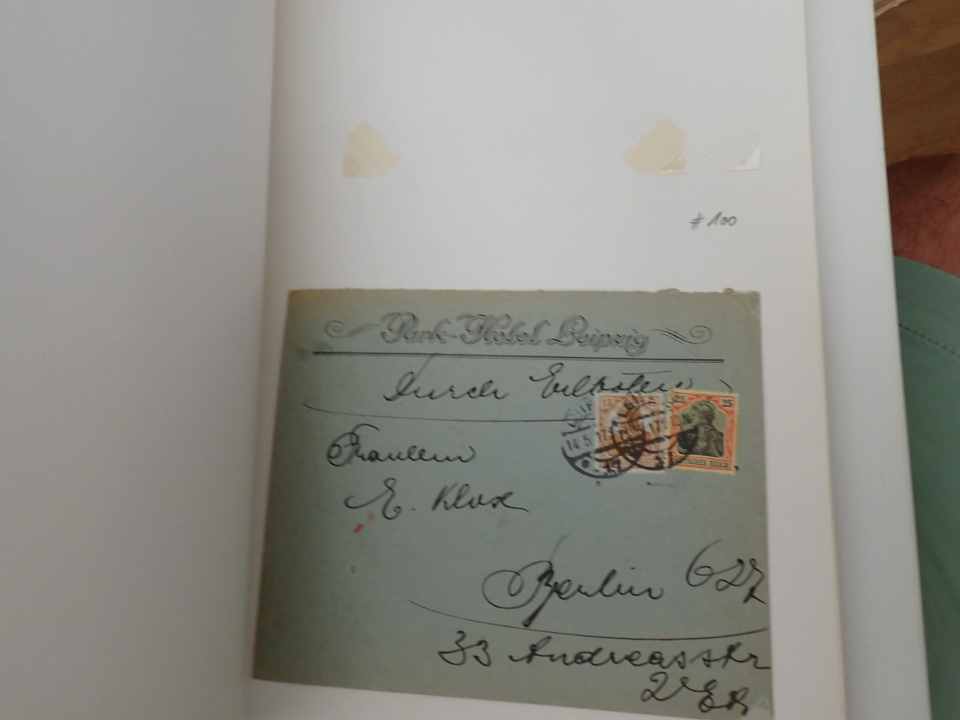 # 100
Park-Hotel Leipzig
Durch Eilboten
25
14.5.17
Fräulein
E. Klox
Berlin 627
33 Andreasstr